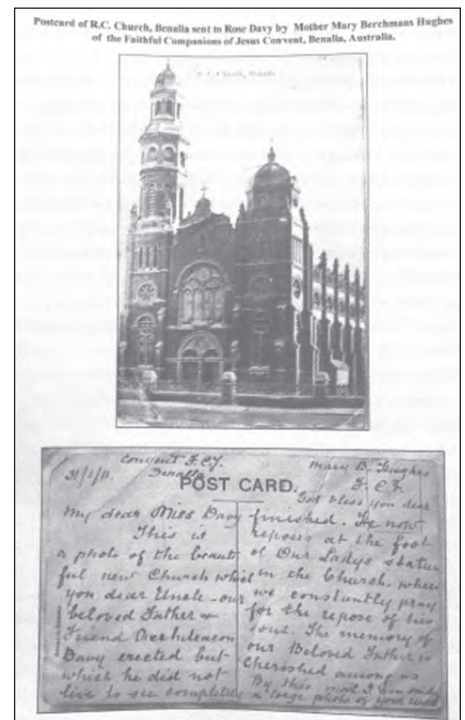 Postcard of R.C. Church, Benalla sent to Rose Davy by Mother Mary Berchmans Hughes
of the Faithful Companions of Jesus Convent, Benalla, Australia.
R. C. Church, Benalla
Convent F.C.J.
Benalla
31/1/11.
POST CARD.
My dear Miss Davy
This is
a photo of the beauti
ful new Church which
you dear Uncle - our
beloved Father &
Friend Archdeacon
Davy erected but
which he did not
live to see completely
Mary B. Hughes
F.C.J.
God bless you dear
finished. He now
reposes at the foot
of Our Lady's statue
in the Church where
we constantly pray
for the repose of his
soul. The memory of
our Beloved Father is
cherished among us
By this mail I am
a large photo of your